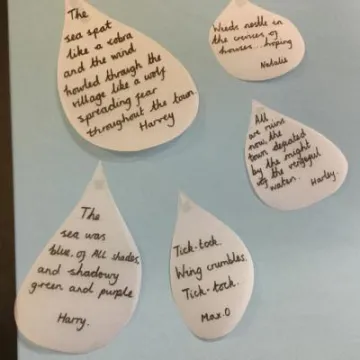 The
sea spat
like a cobra
and the wind
howled through the
village like a wolf
spreading fear
throughout the town
Harrey
Weeds nestle in
the crevices of
houses...hoping
Natalie
All
are ruins
now the
town defeated
by the might
of the vengeful
water.
Harley.
The
sea was
blue, of All shades,
and shadowy
green and purple
Harry.
Tick-tock.
Wing crumbles.
Tick-tock.
Max.O